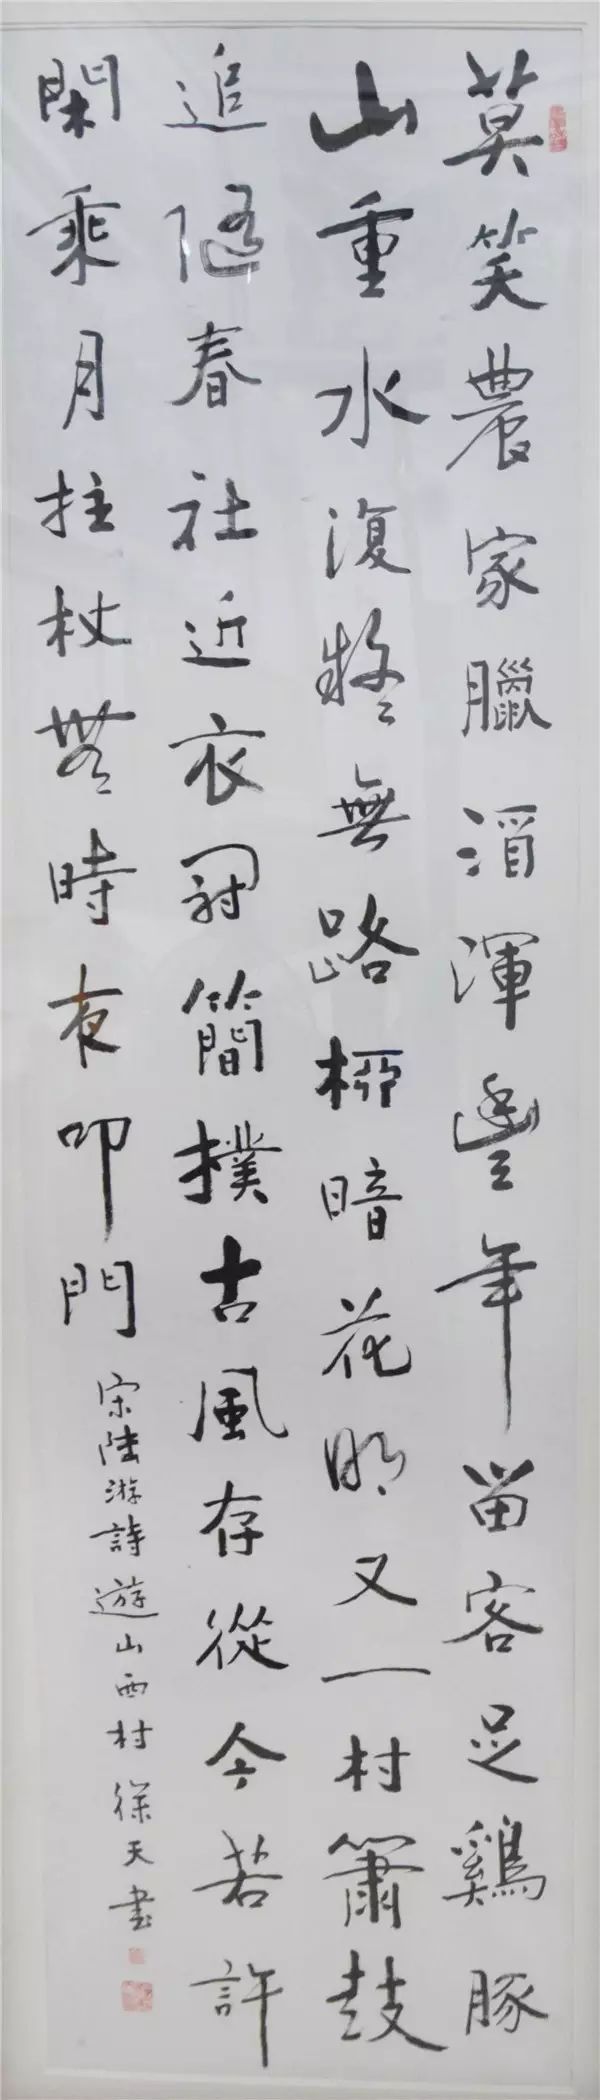 莫笑農家臘酒渾豐年留客足鷄豚
山重水復疑無路柳暗花明又一村簫鼓
追隨春社近衣冠簡樸古風存從今若許
閑乘月拄杖無時夜叩門
宋陸游詩遊山西村徐天書